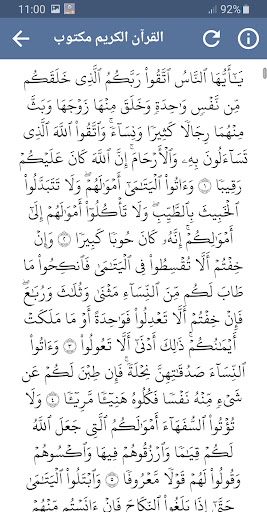 11:00 92%
القرآن الكريم مكتوب
يَـٰٓأَيُّهَا ٱلنَّاسُ ٱتَّقُوا۟ رَبَّكُمُ ٱلَّذِى خَلَقَكُم
مِّن نَّفْسٍ وَٰحِدَةٍ وَخَلَقَ مِنْهَا زَوْجَهَا وَبَثَّ
مِنْهُمَا رِجَالًا كَثِيرًا وَنِسَآءً ۚ وَٱتَّقُوا۟ ٱللَّهَ ٱلَّذِى
تَسَآءَلُونَ بِهِۦ وَٱلْأَرْحَامَ ۚ إِنَّ ٱللَّهَ كَانَ عَلَيْكُمْ
رَقِيبًا ١ وَءَاتُوا۟ ٱلْيَتَـٰمَىٰٓ أَمْوَٰلَهُمْ ۖ وَلَا تَتَبَدَّلُوا۟
ٱلْخَبِيثَ بِٱلطَّيِّبِ ۖ وَلَا تَأْكُلُوٓا۟ أَمْوَٰلَهُمْ إِلَىٰٓ
أَمْوَٰلِكُمْ ۚ إِنَّهُۥ كَانَ حُوبًا كَبِيرًا ٢ وَإِنْ
خِفْتُمْ أَلَّا تُقْسِطُوا۟ فِى ٱلْيَتَـٰمَىٰ فَٱنكِحُوا۟ مَا
طَابَ لَكُم مِّنَ ٱلنِّسَآءِ مَثْنَىٰ وَثُلَـٰثَ وَرُبَـٰعَ ۖ
فَإِنْ خِفْتُمْ أَلَّا تَعْدِلُوا۟ فَوَٰحِدَةً أَوْ مَا مَلَكَتْ
أَيْمَـٰنُكُمْ ۚ ذَٰلِكَ أَدْنَىٰٓ أَلَّا تَعُولُوا۟ ٣ وَءَاتُوا۟
ٱلنِّسَآءَ صَدُقَـٰتِهِنَّ نِحْلَةً ۚ فَإِن طِبْنَ لَكُمْ عَن
شَىْءٍ مِّنْهُ نَفْسًا فَكُلُوهُ هَنِيٓـًٔا مَّرِيٓـًٔا ٤ وَلَا
تُؤْتُوا۟ ٱلسُّفَهَآءَ أَمْوَٰلَكُمُ ٱلَّتِى جَعَلَ ٱللَّهُ
لَكُمْ قِيَـٰمًا وَٱرْزُقُوهُمْ فِيهَا وَٱكْسُوهُمْ
وَقُولُوا۟ لَهُمْ قَوْلًا مَّعْرُوفًا ٥ وَٱبْتَلُوا۟ ٱلْيَتَـٰمَىٰ
حَتَّىٰٓ إِذَا بَلَغُوا۟ ٱلنِّكَاحَ فَإِنْ ءَانَسْتُم مِّنْهُمْ